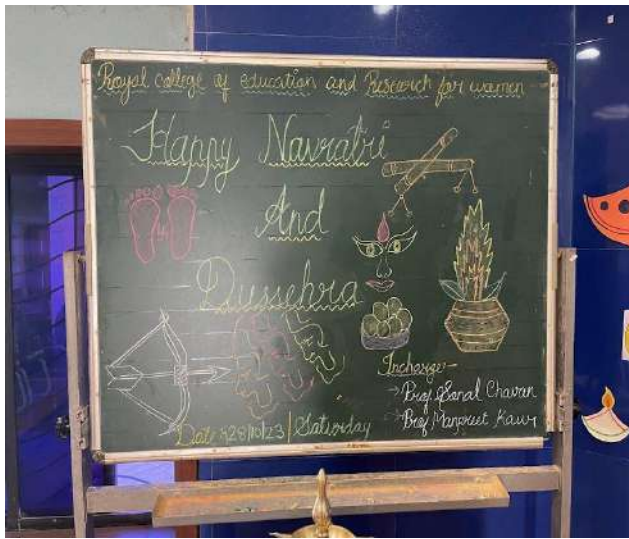 Royal college of education and Research for women
Happy Navratri
And
Dussehra
Incharge -
→ Prof. Sonal Chavan
→ Prof Manpreet Kaur
Date : 28/10/23 | Saturday